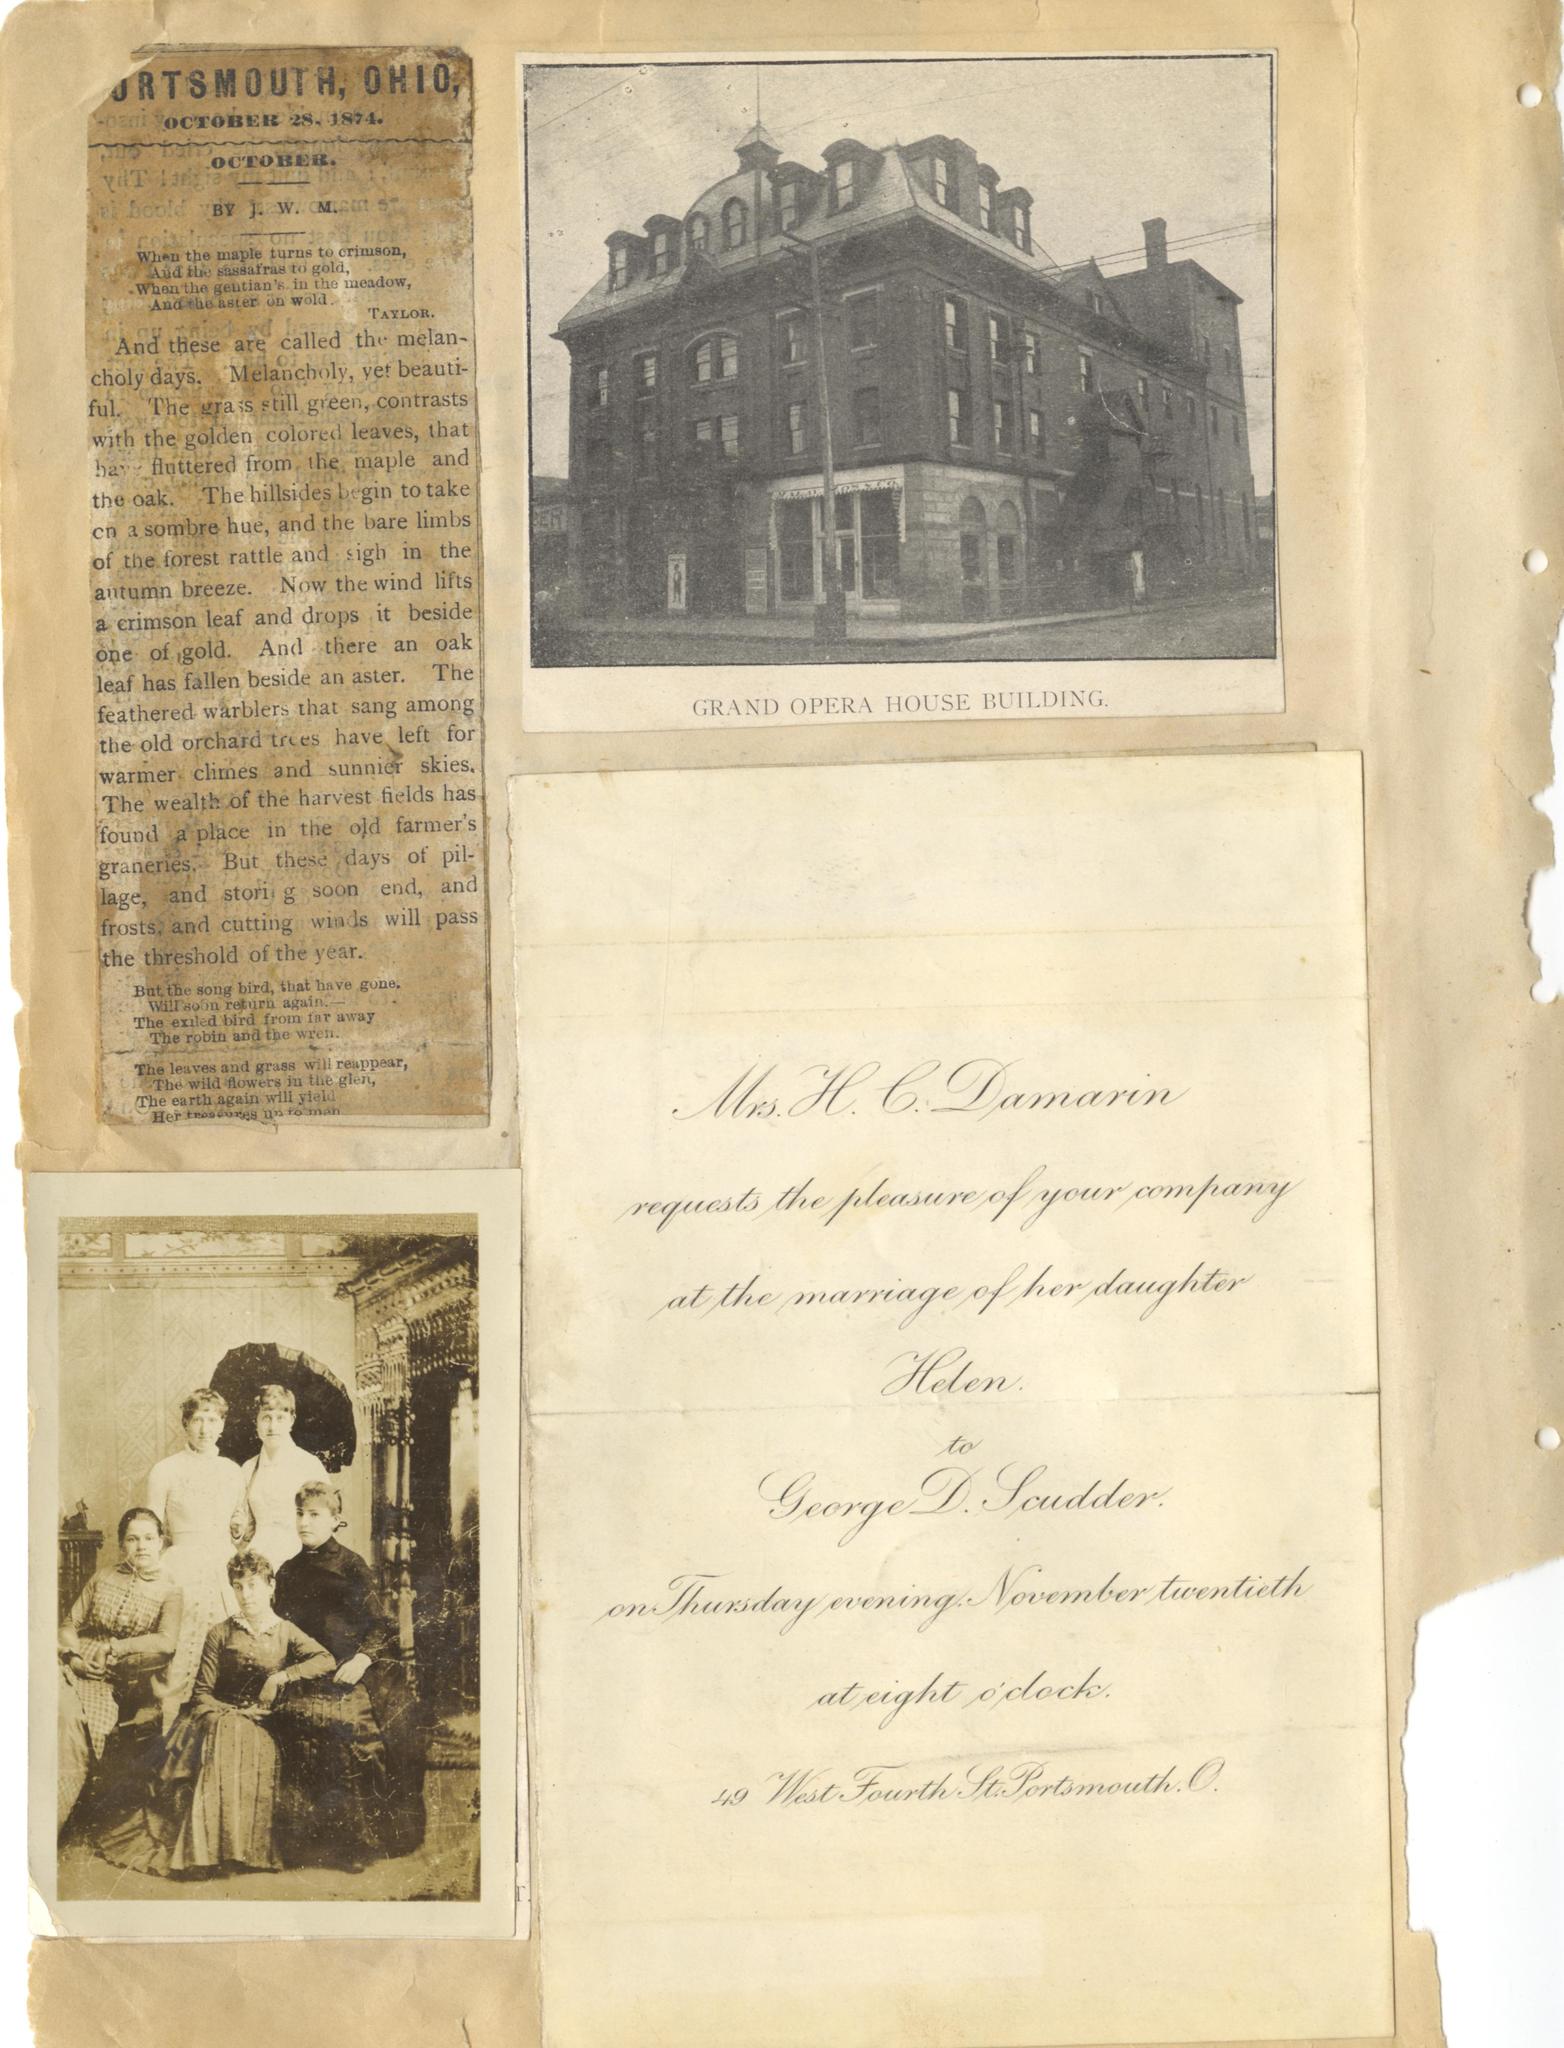 ORTSMOUTH, OHIO,
OCTOBER 28, 1874.
OCTOBER.
BY J. W. M.
When the maple turns to crimson,
And the sassafras to gold,
When the gentian's in the meadow,
And the aster on wold.
TAYLOR.
And these are called the melan-
choly days. Melancholy, yet beauti-
ful. The grass still green, contrasts
with the golden colored leaves, that
have fluttered from the maple and
the oak. The hillsides begin to take
on a sombre hue, and the bare limbs
of the forest rattle and sigh in the
autumn breeze. Now the wind lifts
a crimson leaf and drops it beside
one of gold. And there an oak
leaf has fallen beside an aster. The
feathered warblers that sang among
the old orchard trees have left for
warmer climes and sunnier skies.
The wealth of the harvest fields has
found a place in the old farmer's
graneries. But these days of pil-
lage, and stori g soon end, and
frosts, and cutting winds will pass
the threshold of the year.
But the song bird, that have gone.
Will soon return again.—
The exiled bird from far away
The robin and the wren.
The leaves and grass will reappear,
The wild flowers in the glen,
The earth again will yield
Her treasures up to man
GRAND OPERA HOUSE BUILDING.
Mrs. H. C. Damarin
requests the pleasure of your company
at the marriage of her daughter
Helen.
to
George D. Scudder.
on Thursday evening, November twentieth
at eight o'clock.
49 West Fourth St. Portsmouth. O.
T.